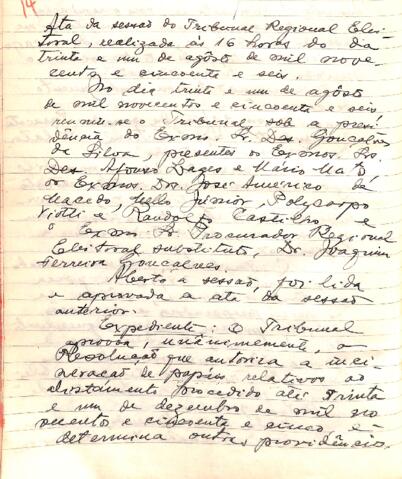 14
Ata da sessão do Tribunal Regional Elei-
toral, realizada às 16 horas do dia
trinta e um de agôsto de mil nove-
centos e cincoenta e seis.
No dia trinta e um de agôsto
de mil novecentos e cincoenta e seis
reuniu-se o Tribunal, sob a presi-
dência do Exmo. Sr. Des. Gonçalves
da Silva, presentes os Exmos. Srs.
Des. Afonso Lages e Mário Matos
os Exmos. Drs. José Américo de
Macedo, Mello Júnior, Polycarpo
Viotti e Randolfo Castilho, e
o Exmo. Sr. Procurador Regional
Eleitoral substituto, Dr. Joaquim
Ferreira Gonçalves.
Aberta a sessão, foi lida
e aprovada a ata da sessão
anterior.
Expediente: O Tribunal
aprova, unânimemente, a
Resolução que autoriza a inci-
neração de papéis relativos ao
alistamento procedido até trinta
e um de dezembro de mil no-
vecentos e cincoenta e cinco, e
determina outras providências.